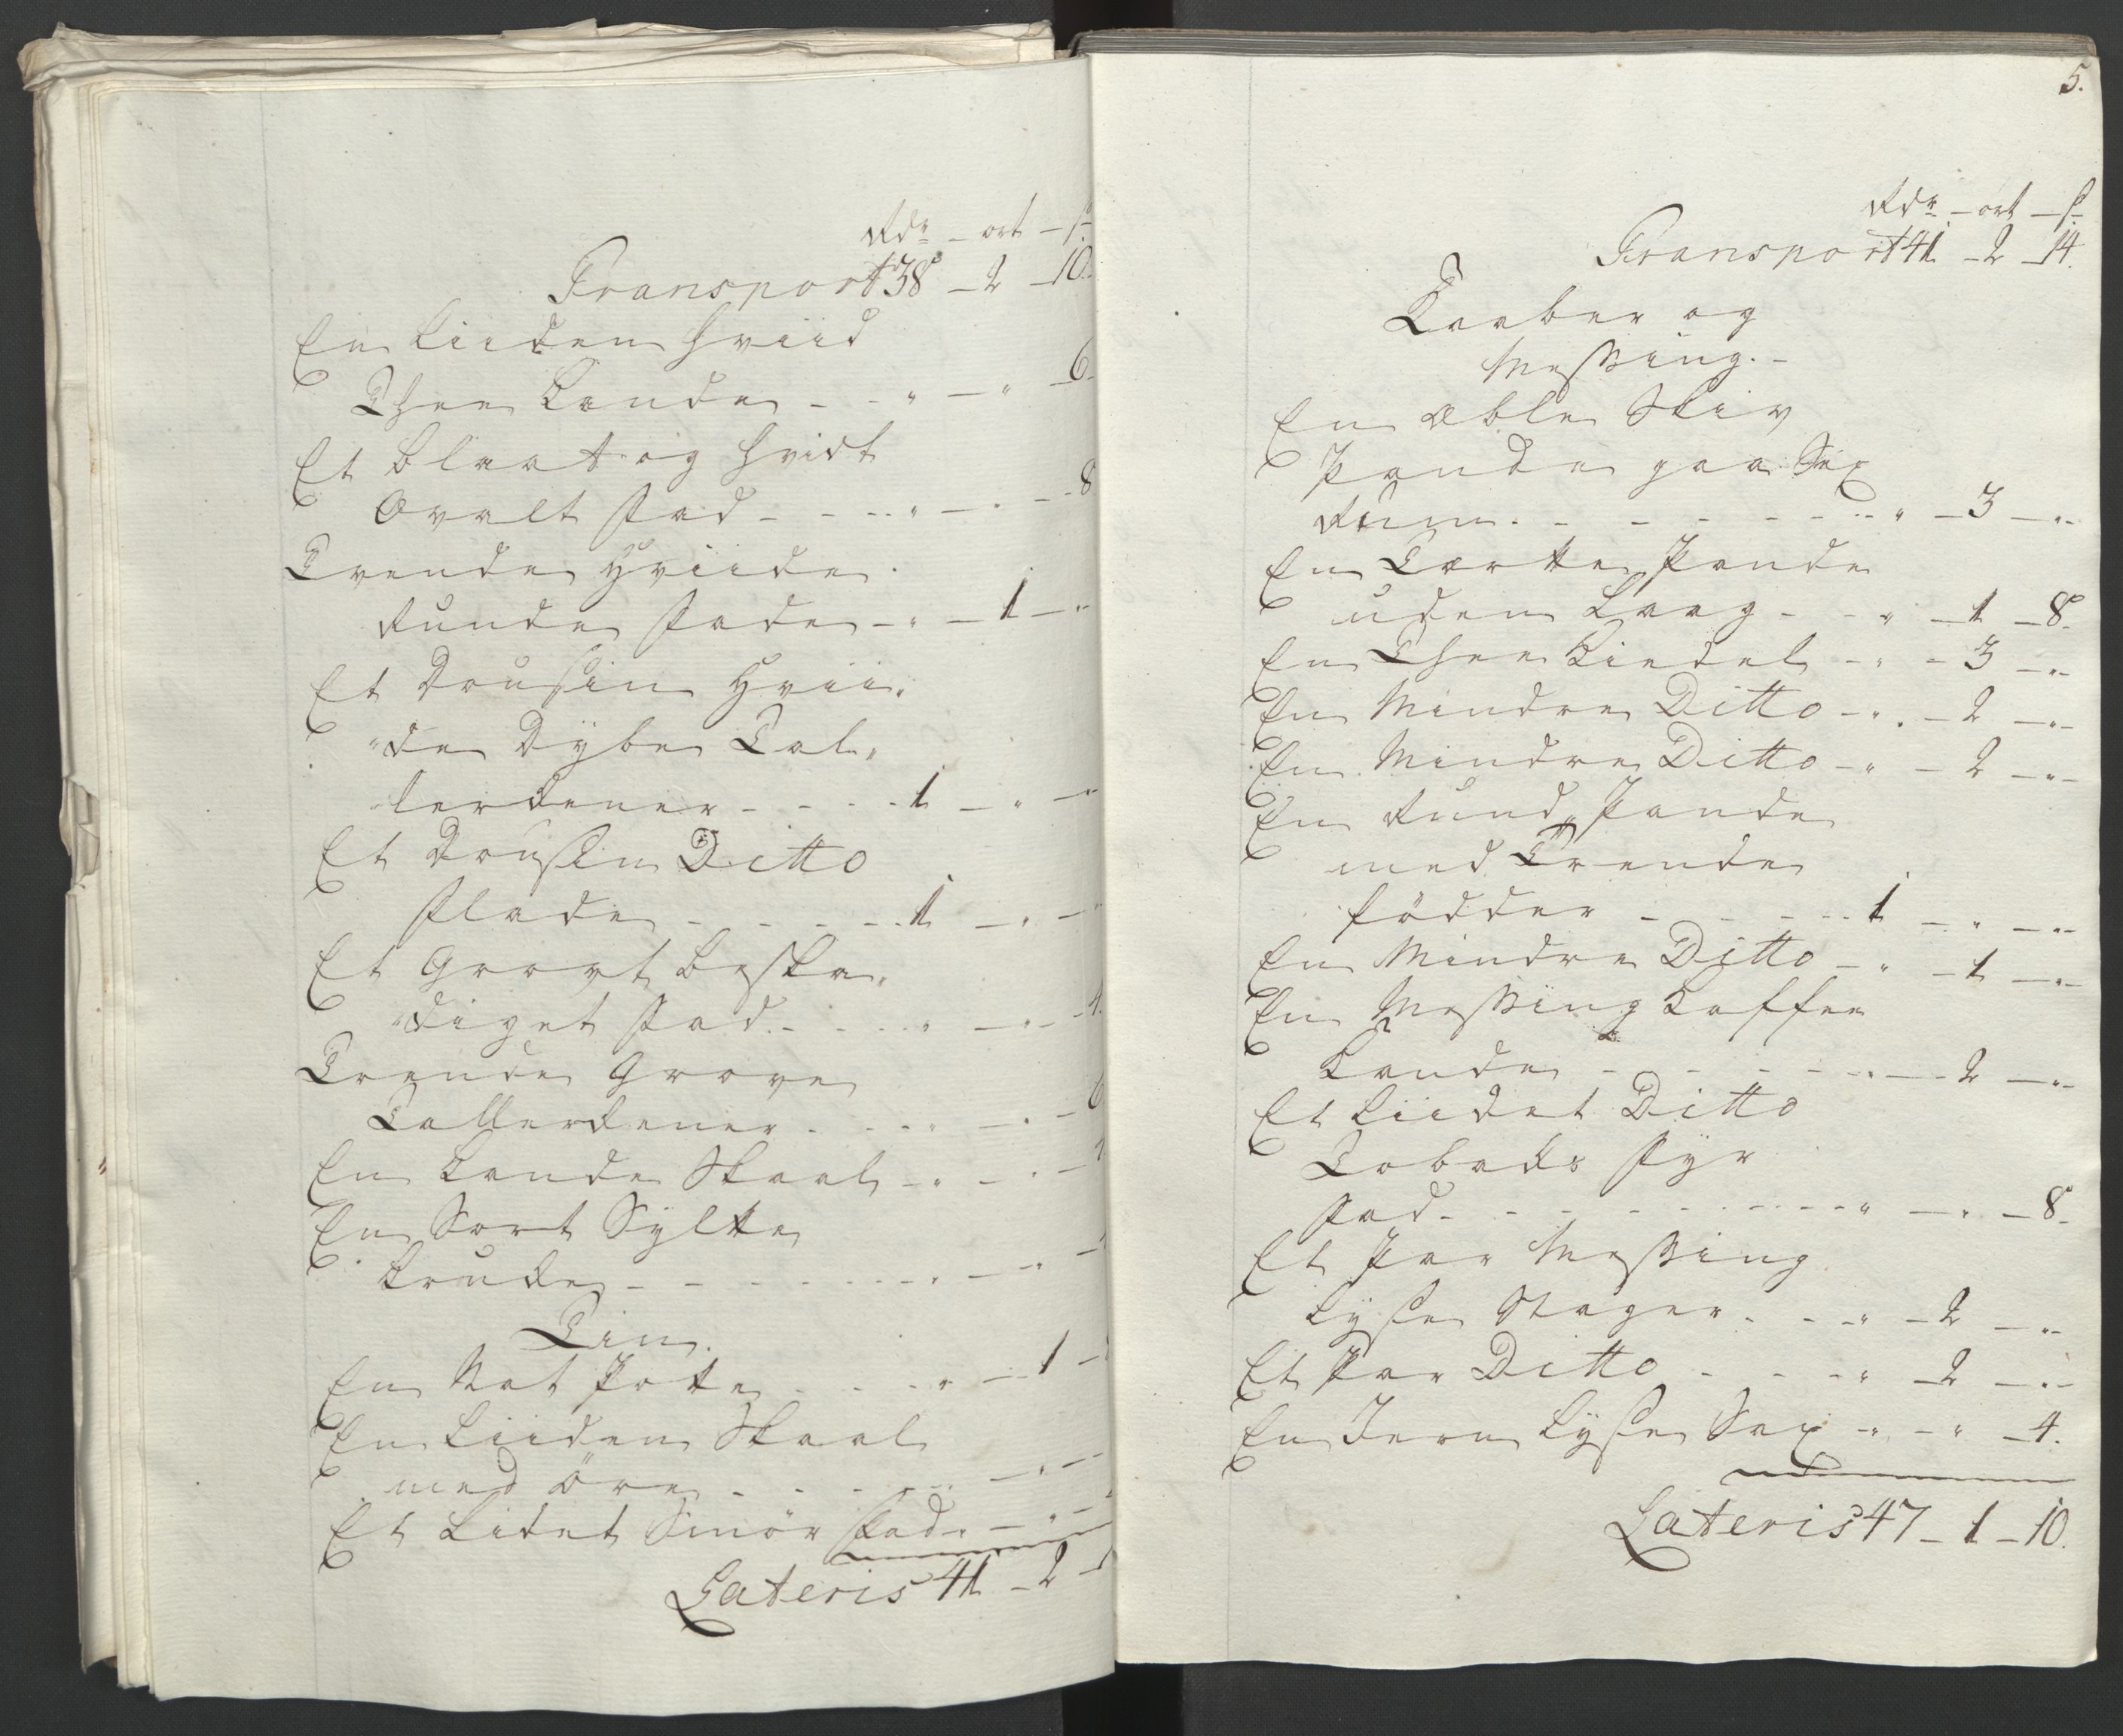 Rdr – ort – s
Transport 38 – 2 – 10.
En liiden hviid
Thee Kande - - " – " – 6.
Et blaat og hvidt
Ovalt Fad - - - - " – " – 8
Tvende Hviide
Runde Fade – " – 1 – "
Et Dousin Hvii,,
,,de Dybe Tal,,
lerkener - - - - 1 – " –
Et Dousin Ditto
Flade - - - - - 1 – " –
Et Grovt beska,,
,,diget Fad - - - " – " – 4.
Trende Grove
Tallerkener - - - " – " – 6
En Kande Skaal – " – " –
En Sort Sylte
Krukke - - - - - - - " – " –
Tin.
En Nat Potte - - - " – 1 –
En Liiden Skaal
med Øre - - - - - – " –
Et Lidet Smør Fad " – " –
Lateris 41 – 2 – 1
5.
Rdr – ort – s
Transport 41 – 2 – 14.
Kaaber og
Messing. –
En Æble Skiv
Pande paa Sex
Rum. - - - - - - - " – 3 – "
En Tærte Pande
uden Laag - - - " – 1 – 8.
En Thee Kiedel – " – 3 – "
En Mindre Ditto – " – 2 – "
En Mindre Ditto – " – 2 – "
En Rund Pande
med Trende
fødder - - - - - 1 – " – "
En Mindre Ditto – " – 1 – "
En Messing Kaffee
Kande - - - - - - " – 2 – "
Et Liidet Ditto
Tobaks Fyr
Fad - - - - - - - - - " – " – 8.
Et Par Messing
Lyse Stager - - - " – 2 – "
Et Par Ditto - - - " – 2 – "
En Jern Lyse Sax – " – " – 4.
Lateris 47 – 1 – 10.